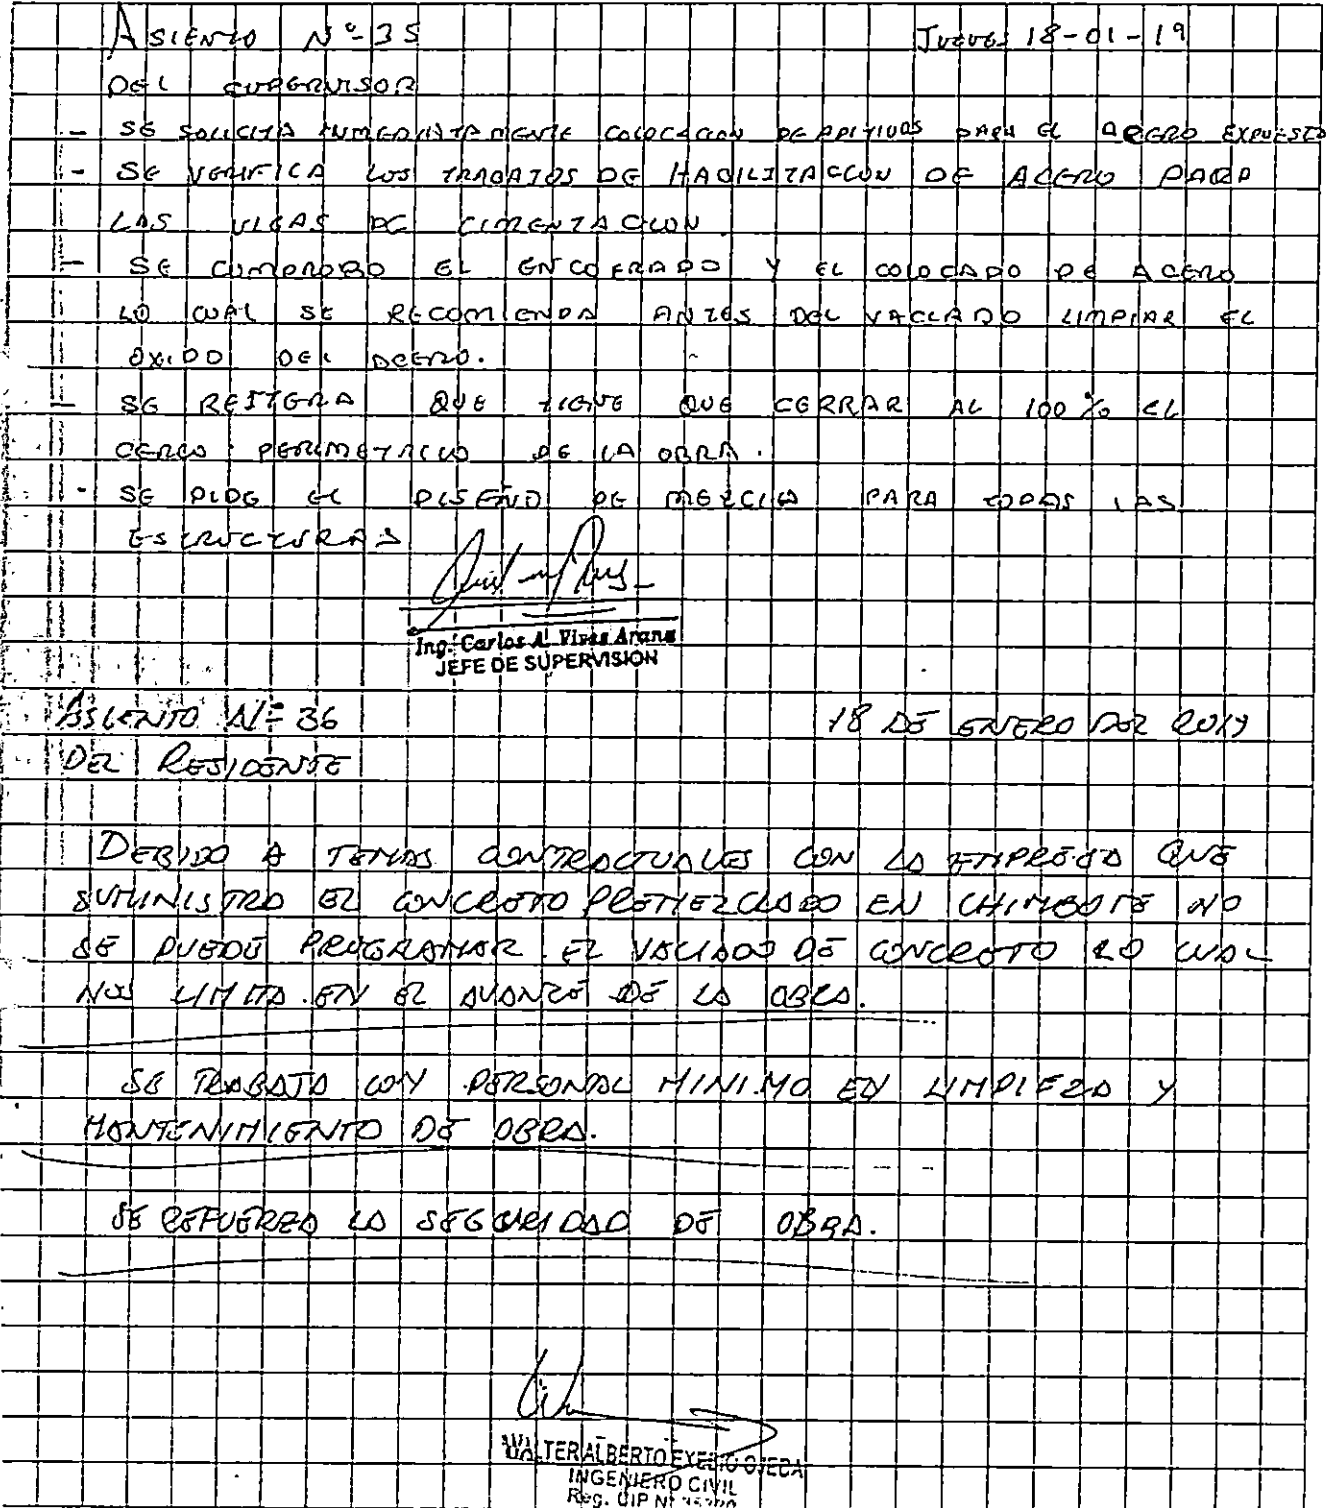 ASIENTO Nº-35 JUEVES 18-01-19
DEL SUPERVISOR
- SE SOLICITA INMEDIATAMENTE COLOCACION DE ADITIVOS PARA EL ACERO EXPUESTO
- SE VERIFICA LOS TRABAJOS DE HABILITACION DE ACERO PARA
LAS VIGAS DE CIMENTACION
- SE COMPROBO EL ENCOFRADO Y EL COLOCADO DE ACERO
LO CUAL SE RECOMIENDA ANTES DEL VACIADO LIMPIAR EL
OXIDO DEL ACERO.
- SE REITERA QUE TIENE QUE CERRAR AL 100% EL
CERCO PERIMETRICO DE LA OBRA.
- SE PIDE EL DISEÑO DE MEZCLA PARA TODAS LAS
ESTRUCTURAS
Ing. Carlos A. Vives Arana
JEFE DE SUPERVISION
ASIENTO Nº 36 18 DE ENERO DEL 2019
DEL RESIDENTE
DEBIDO A TEMAS CONTRACTUALES CON LA EMPRESA QUE
SUMINISTRA EL CONCRETO PREMEZCLADO EN CHIMBOTE NO
SE PUEDE PROGRAMAR EL VACIADO DE CONCRETO LO CUAL
NOS LIMITA EN EL AVANCE DE LA OBRA.
SE TRABAJA CON PERSONAL MINIMO EN LIMPIEZA Y
MANTENIMIENTO DE OBRA.
SE REFUERZA LA SEGURIDAD DE OBRA.
WALTER ALBERTO OJEDA
INGENIERO CIVIL
Reg. CIP Nº